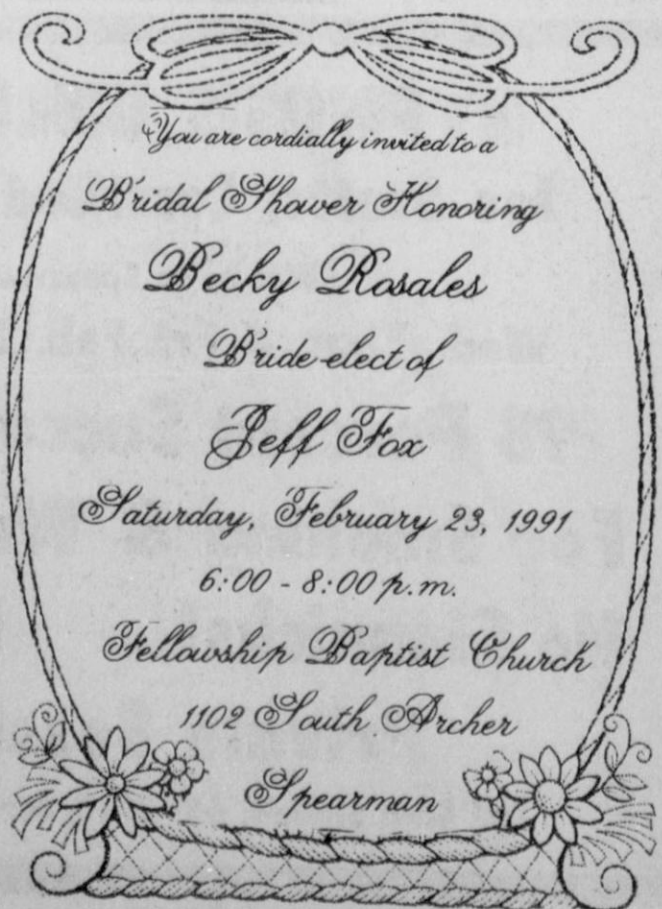 You are cordially invited to a
Bridal Shower Honoring
Becky Rosales
Bride-elect of
Jeff Fox
Saturday, February 23, 1991
6:00 - 8:00 p.m.
Fellowship Baptist Church
1102 South Archer
Spearman